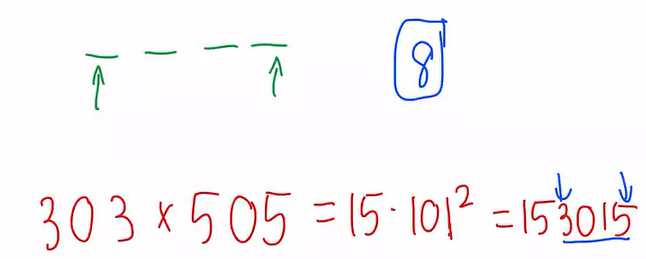 8
303 × 505 = 15 · 101² = 153015